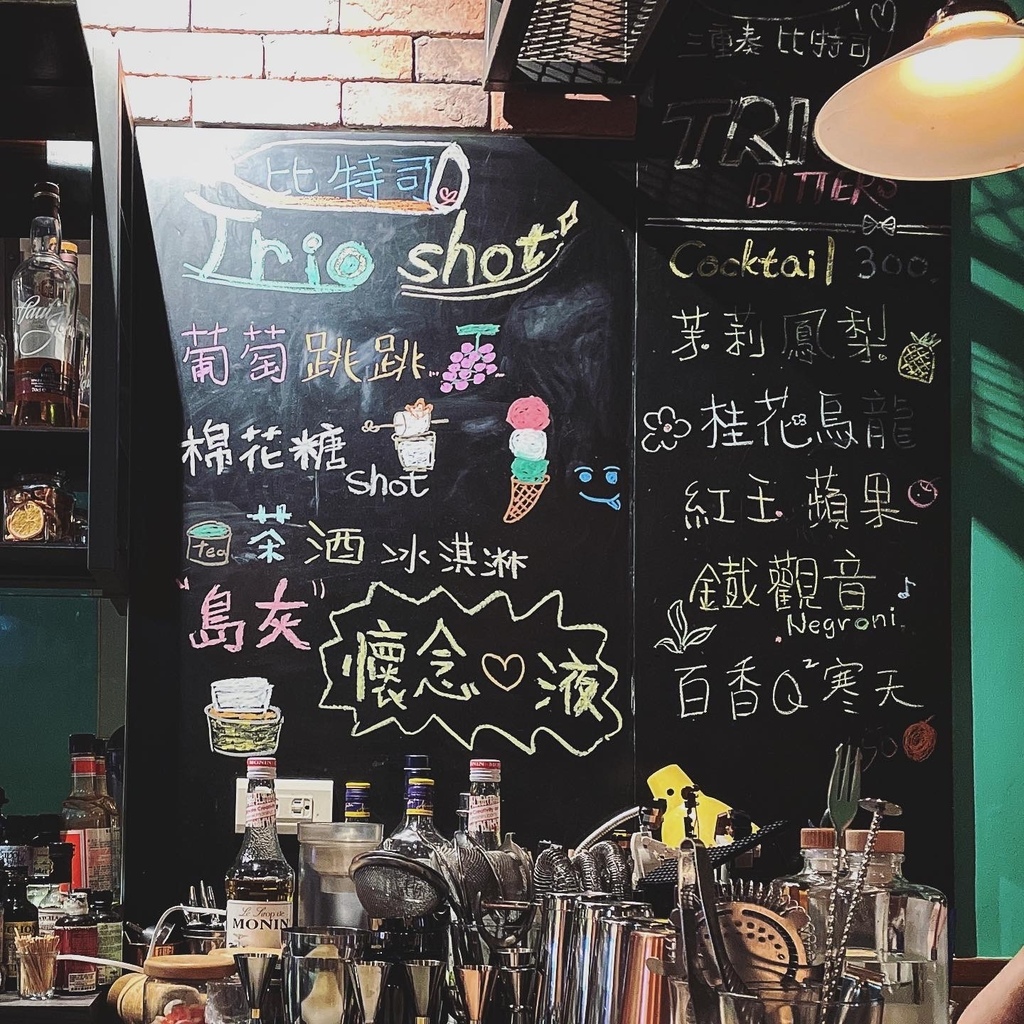 比特司
Trio shot
葡萄跳跳
棉花糖
shot
tea
茶酒冰淇淋
"島灰"
懷念♡液
三重奏 比特司
TRI
BITTERS
Cocktail 300
茉莉鳳梨
桂花烏龍
紅玉蘋果
鐵觀音
Negroni
百香Q²寒天
MONIN